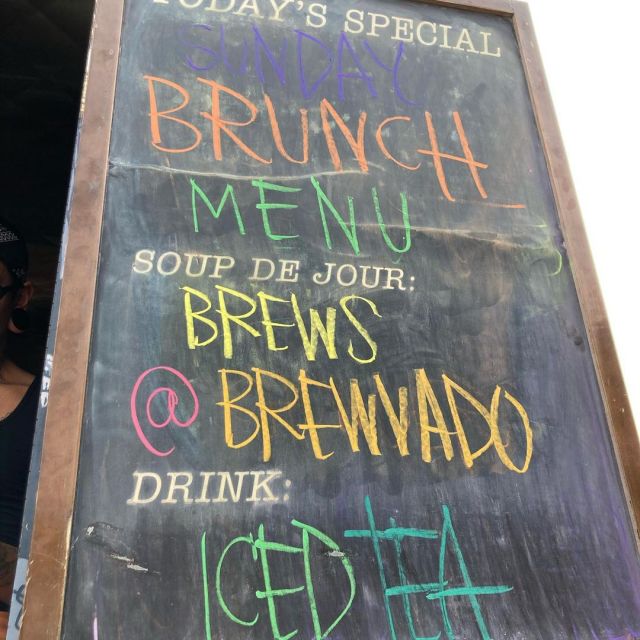 TODAY'S SPECIAL
SUNDAY
BRUNCH
MENU
SOUP DE JOUR:
BREWS
@ BREWVADO
DRINK:
ICED TEA